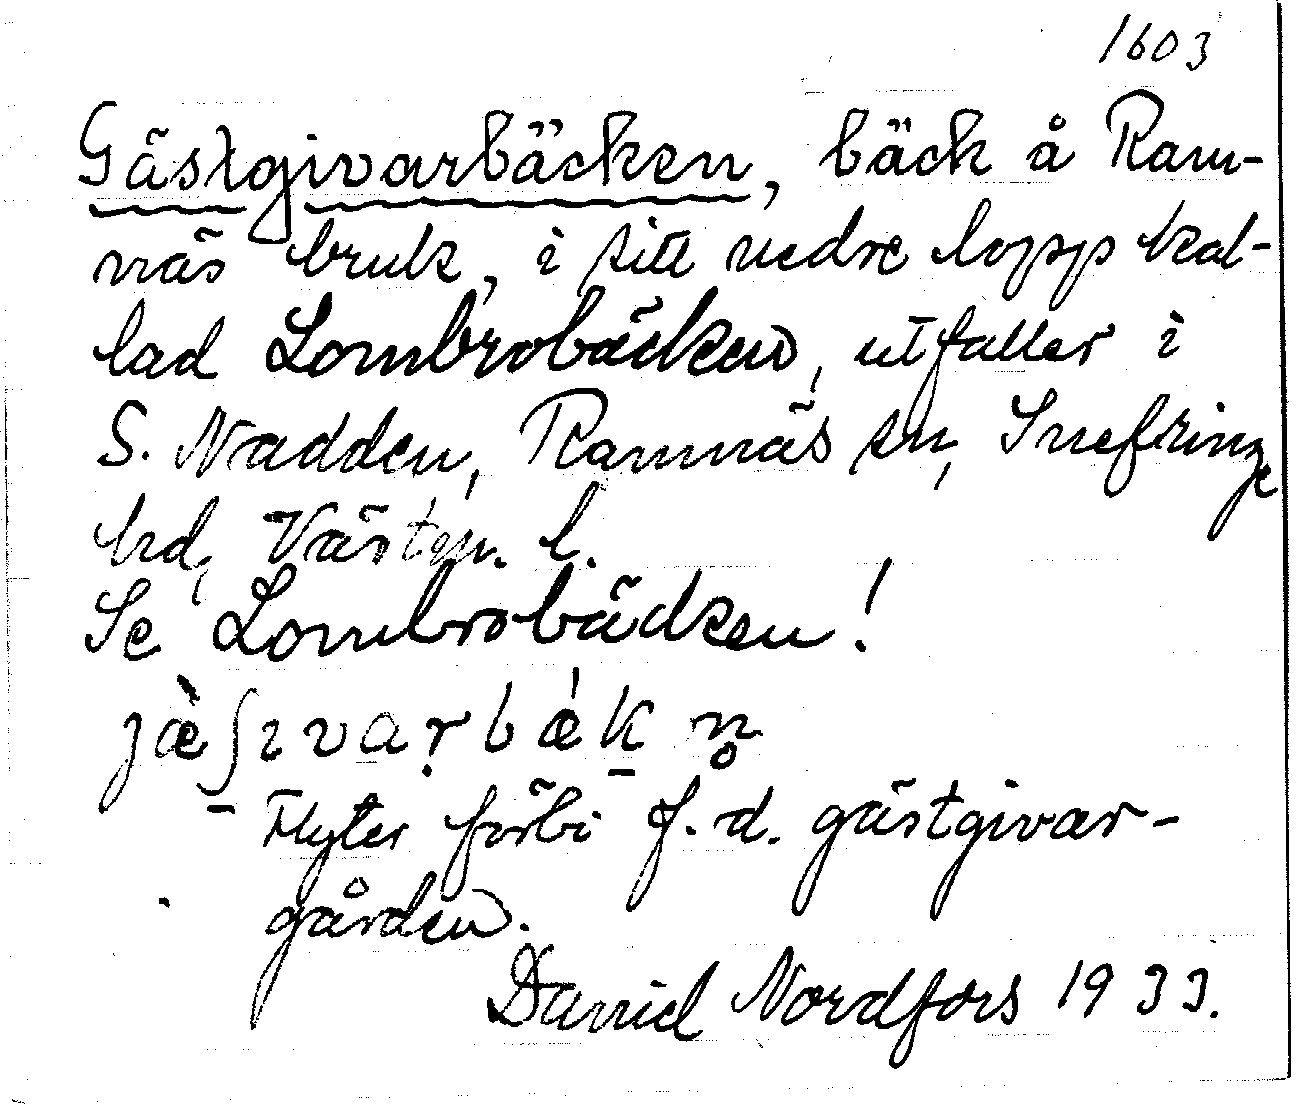 1603
Gästgivarbäcken, bäck å Ram-
näs bruk, i sitt nedre lopp kal-
lad Lombrobäcken, utfaller i
S. Nadden, Ramnäs sn, Snefringe
hd, Västm. l.
Se Lombrobäcken!
jæ̀ʃɪvarbǽkn̥
Flyter förbi f.d. gästgivar-
gården.
Daniel Nordfors 1933.